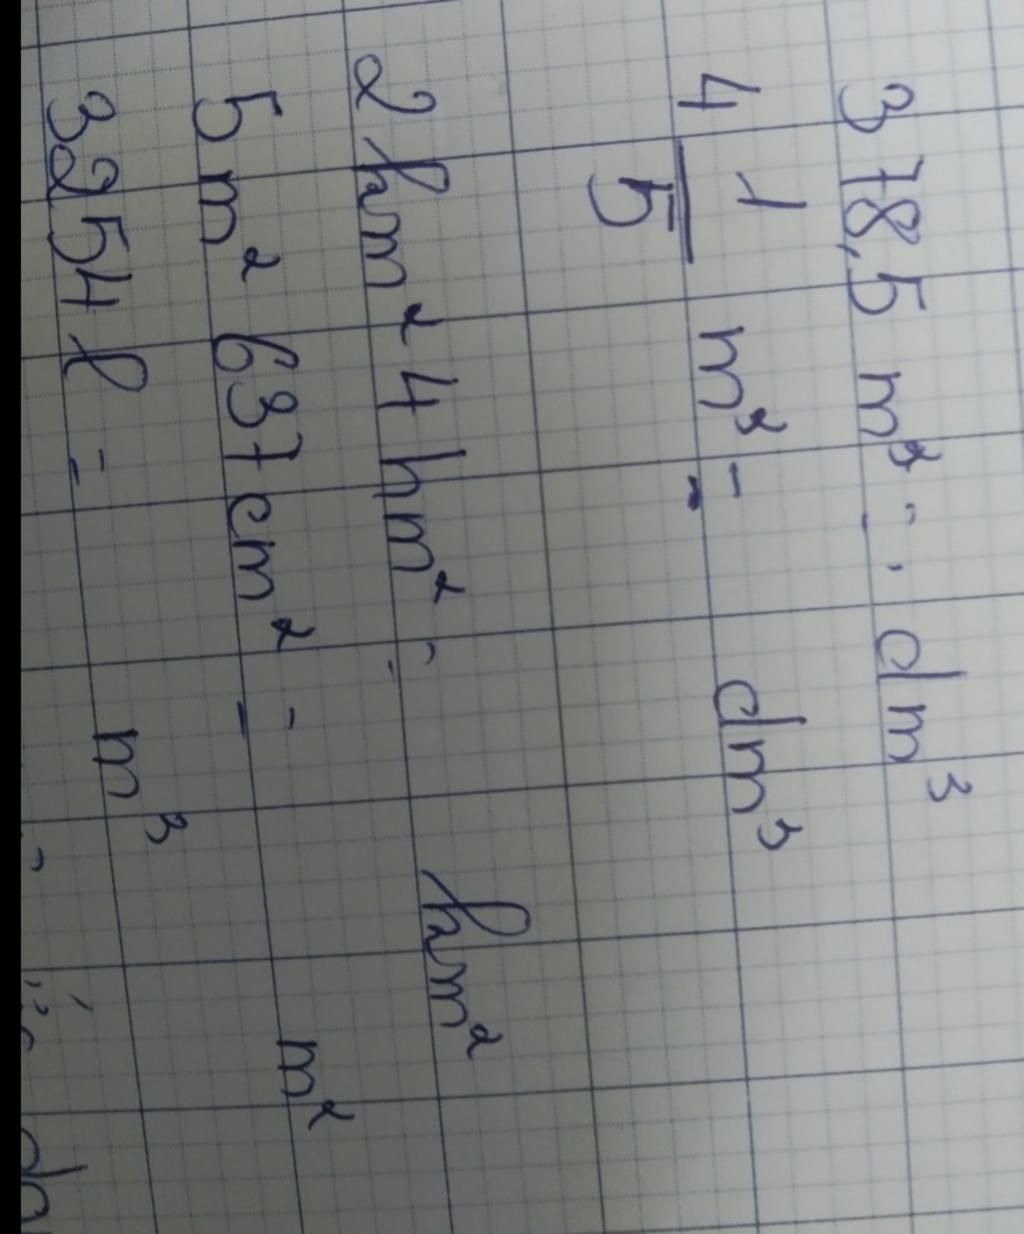 378,5 m³ = dm³
4 1/5 m³ = dm³
2 km² 4 hm² = km²
5 m² 637 cm² = m²
3254 l = m³